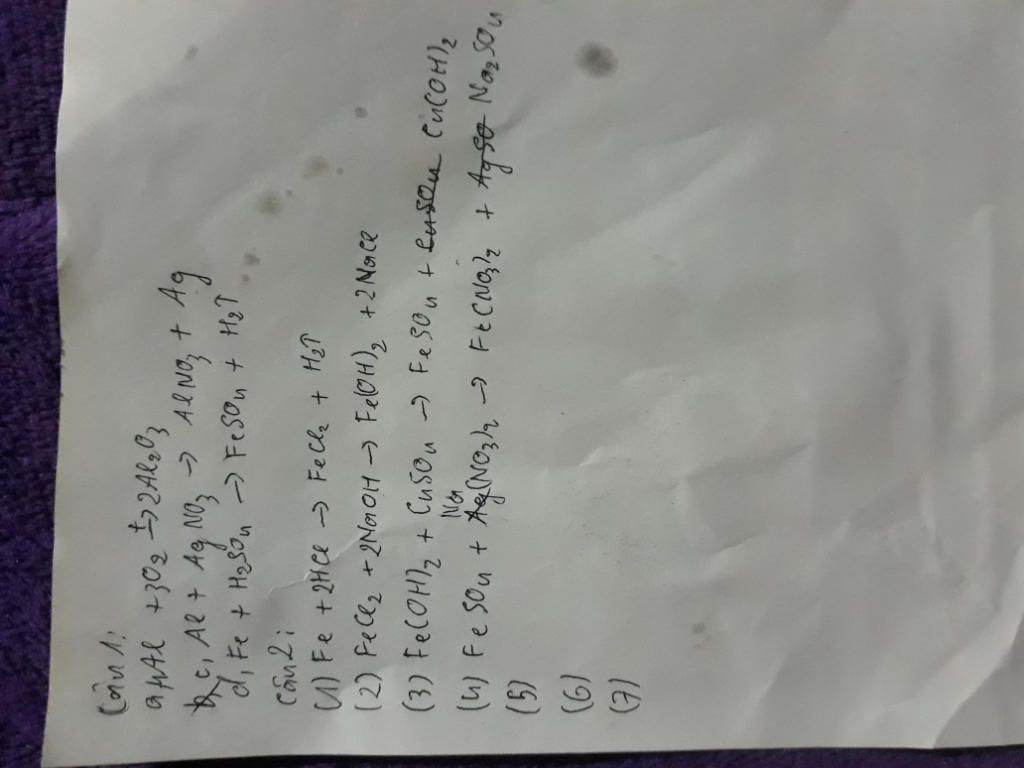 Câu 1:
a, 4Al + 3O2 t→ 2Al2O3
c, Al + AgNO3 → AlNO3 + Ag
d, Fe + H2SO4 → FeSO4 + H2↑
Câu 2:
(1) Fe + 2HCl → FeCl2 + H2↑
(2) FeCl2 + 2NaOH → Fe(OH)2 + 2NaCl
(3) Fe(OH)2 + CuSO4 → FeSO4 + Cu(OH)2
(4) FeSO4 + Na(NO3)2 → Fe(NO3)2 + Na2SO4
(5)
(6)
(7)